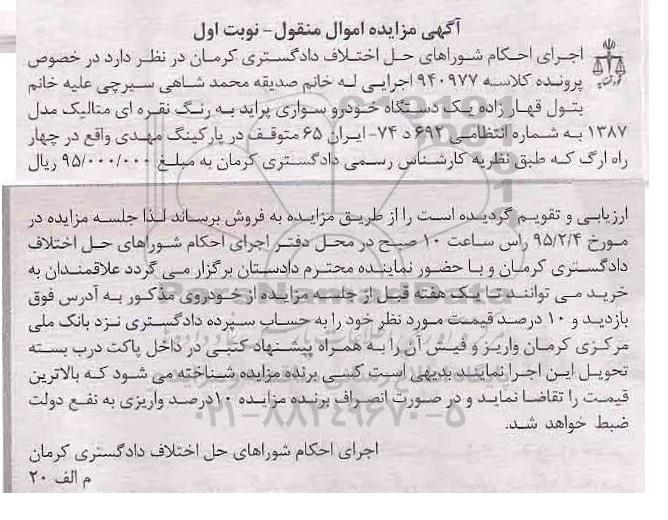 آگهی مزایده اموال منقول- نوبت اول
اجرای احکام شوراهای حل اختلاف دادگستری کرمان در نظر دارد در خصوص
پرونده کلاسه ۹۴۰۹۷۷ اجرایی له خانم صدیقه محمد شاهی سیرچی علیه خانم
بتول قهار زاده یک دستگاه خودرو سواری پراید به رنگ نقره ای متالیک مدل
۱۳۸۷ به شماره انتظامی ۶۹۲ د ۷۴- ایران ۶۵ متوقف در پارکینگ مهدی واقع در چهار
راه ارگ که طبق نظریه کارشناس رسمی دادگستری کرمان به مبلغ ۹۵/۰۰۰/۰۰۰ ریال
ارزیابی و تقویم گردیده است را از طریق مزایده به فروش برساند لذا جلسه مزایده در
مورخ ۹۵/۲/۴ راس ساعت ۱۰ صبح در محل دفتر اجرای احکام شوراهای حل اختلاف
دادگستری کرمان و با حضور نماینده محترم دادستان برگزار می گردد علاقمندان به
خرید می توانند تا یک هفته قبل از جلسه مزایده از خودروی مذکور به آدرس فوق
بازدید و ۱۰ درصد قیمت مورد نظر خود را به حساب سپرده دادگستری نزد بانک ملی
مرکزی کرمان واریز و فیش آن را به همراه پیشنهاد کتبی در داخل پاکت درب بسته
تحویل این اجرا نمایند بدیهی است کسی برنده مزایده شناخته می شود که بالاترین
قیمت را تقاضا نماید و در صورت انصراف برنده مزایده ۱۰درصد واریزی به نفع دولت
ضبط خواهد شد.
۰۲۱-۸۸۳۴۹۶۷۰-۵
اجرای احکام شوراهای حل اختلاف دادگستری کرمان
م الف ۲۰